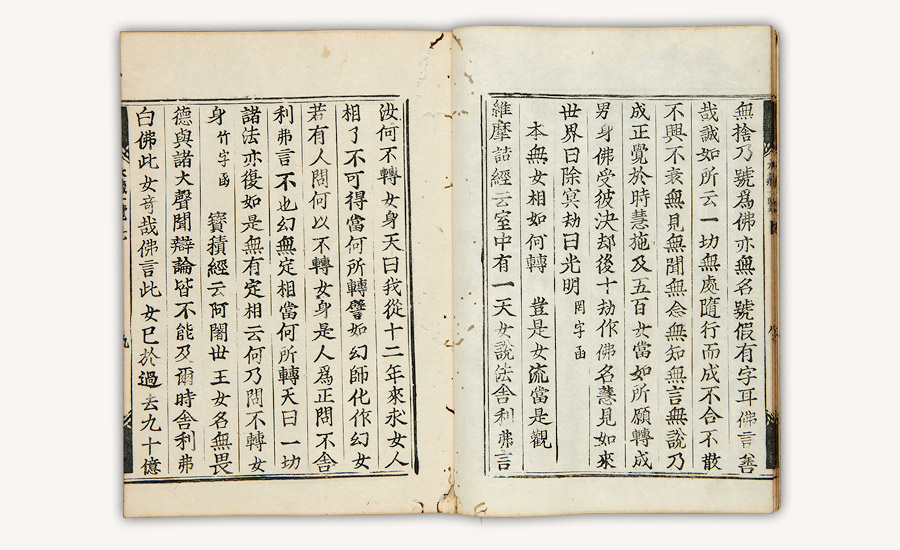 無捨乃號爲佛亦無名號假有字耳佛言善
哉誠如所云一切無處隨行而成不合不散
不興不衰無見無聞無念無知無言無說乃
成正覺於時慧施及五百女當如所願轉成
男身佛受彼決却後十劫作佛名慧見如來
世界曰除冥劫曰光明 罔字函
本無女相如何轉 豈是女流當是觀
維摩詰經云室中有一天女說法舍利弗言
汝何不轉女身天曰我從十二年來求女人
相了不可得當何所轉譬如幻師化作幻女
若有人問何以不轉女身是人爲正問不舍
利弗言不也幻無定相當何所轉天曰一切
諸法亦復如是無有定相云何乃問不轉女
身 竹字函 寳積經云阿闍世王女名無畏
德與諸大聲聞辯論皆不能及爾時舍利弗
白佛此女奇哉佛言此女已於過去九十億